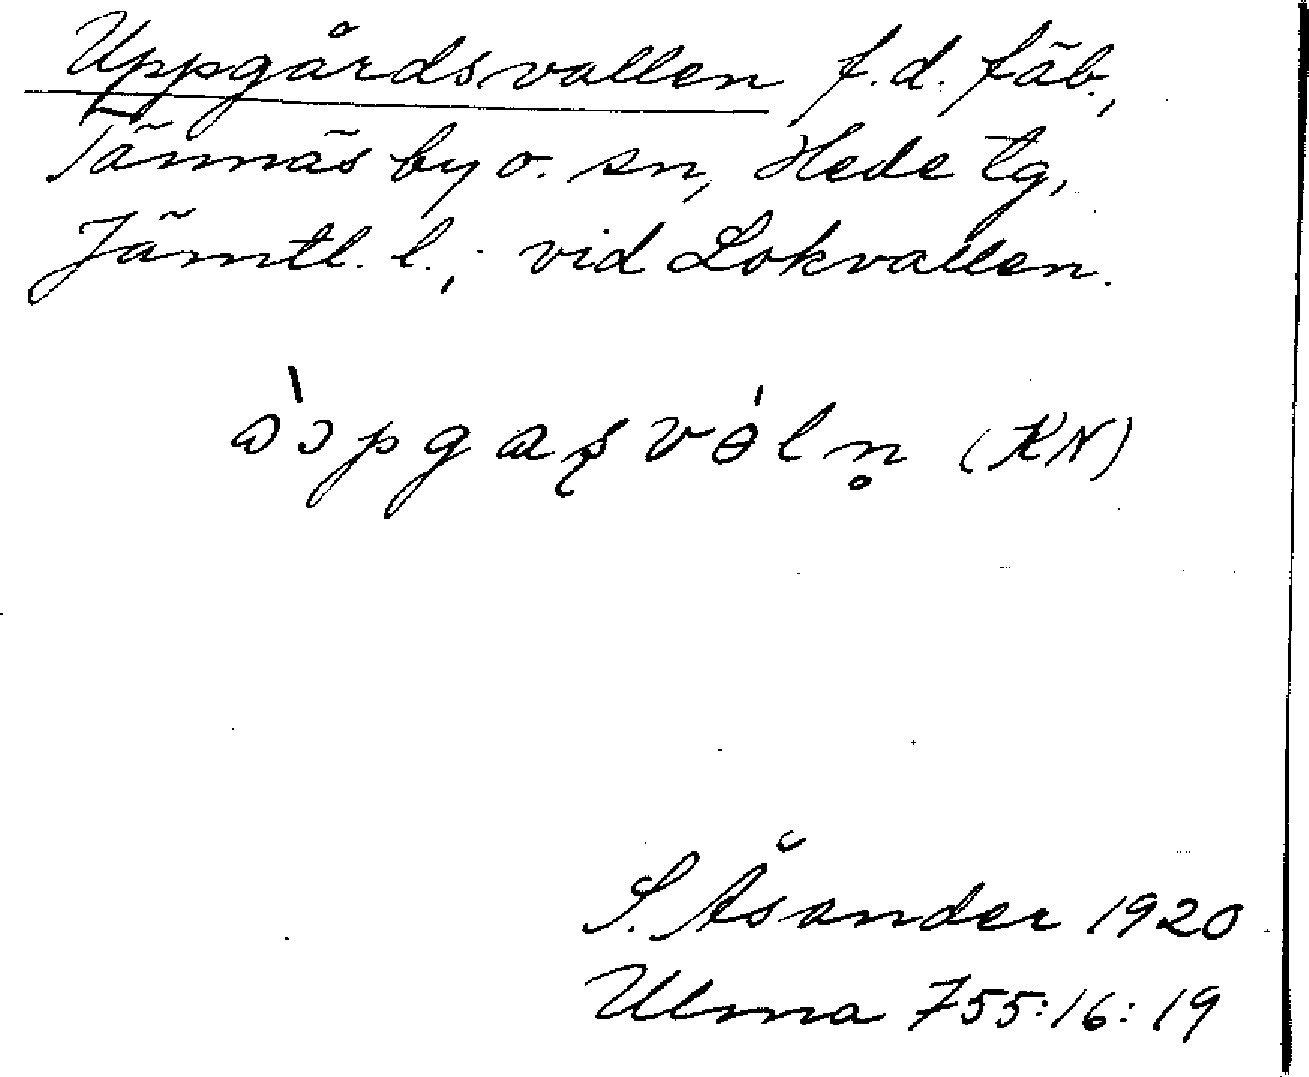 Uppgårdsvallen f.d. fäb.,
Tännäs by o. sn, Hede tg,
Jämtl. l., vid Lokvallen.
(KN)
S. Åsander 1920
Ulma 755:16:19